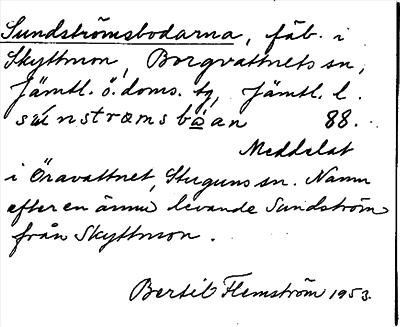 Sundströmsbodarna, fäb. i
Skyttmon, Borgvattnets sn,
Jämtl. ö. doms. tg, Jämtl. l.
súnstrωmsbωan 88.
Meddelat
i Öravattnet, Stuguns sn. Namn
efter en ännu levande Sundström
från Skyttmon.
Bertil Flemström 1953.